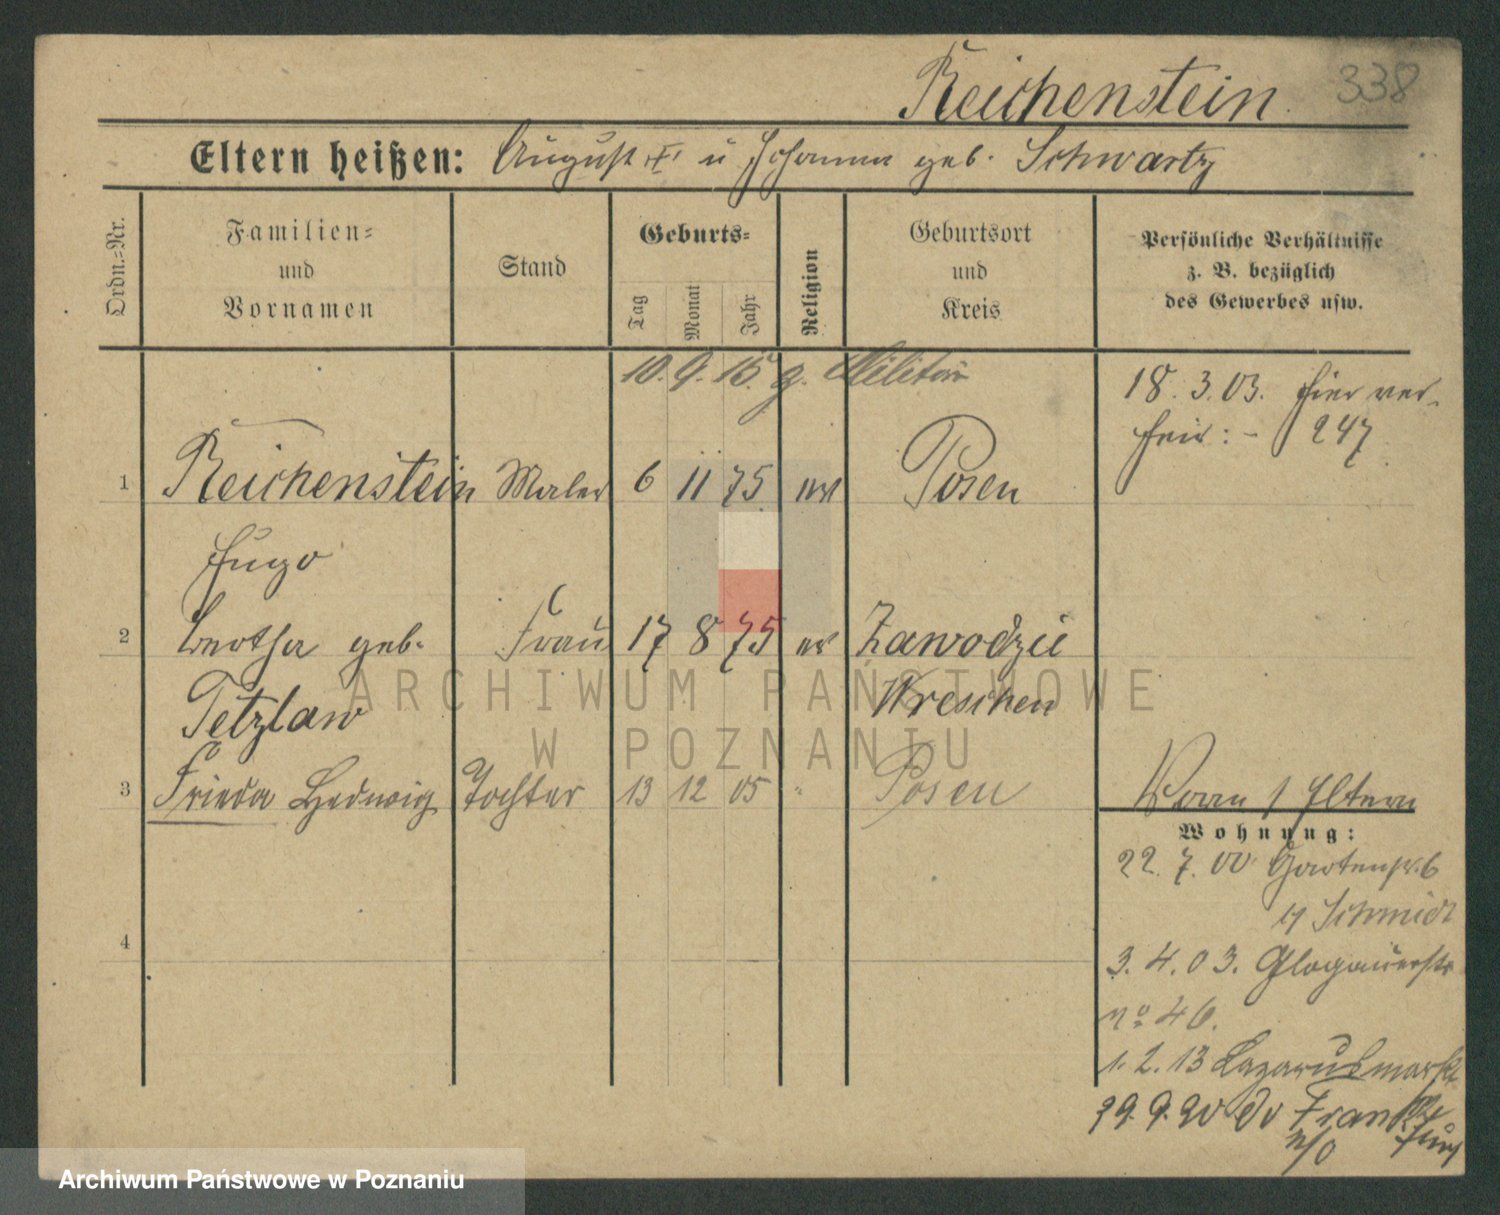 338
Reichenstein
Eltern heißen: August u Johanna geb. Schwartz
Ordn.=Nr.
Familien=
und
Vornamen
Stand
Geburts=
Tag
Monat
Jahr
Religion
Geburtsort
und
Kreis
Persönliche Verhältnisse
z. B. bezüglich
des Gewerbes usw.
10. 9. 15. z. Militär
18. 3. 03. hier ver-
heir: - 247
1 Reichenstein Maler 6 11 75 Posen
Hugo
2 Bertha geb. Frau 17 8 75 ev Zawodzie
Tetzlaw Wreschen
3 Frieda Hedwig Tochter 13 12 05 " Posen
Eltern
Wohnung:
22. 7. 00 Gartenstr. 6
Schmidt
3. 4. 03. Glogauerstr
No 46.
4
1. 2. 13 Lazarusmarkt
29. 9. 20 Frankfurt
a/O
ARCHIWUM PAŃSTWOWE
W POZNANIU
Archiwum Państwowe w Poznaniu